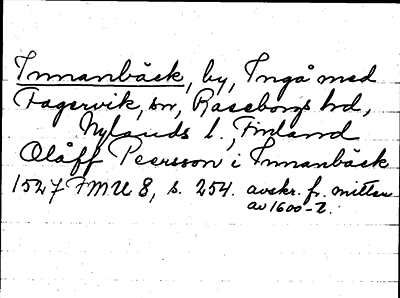 Innanbäck, by, Ingå med
Fagervik, sn, Raseborgs hd,
Nylands l., Finland
Olåff Peersson i Innanbäck
1527 FMU 8, s. 254. avskr. fr. mitten
av 1600-t.